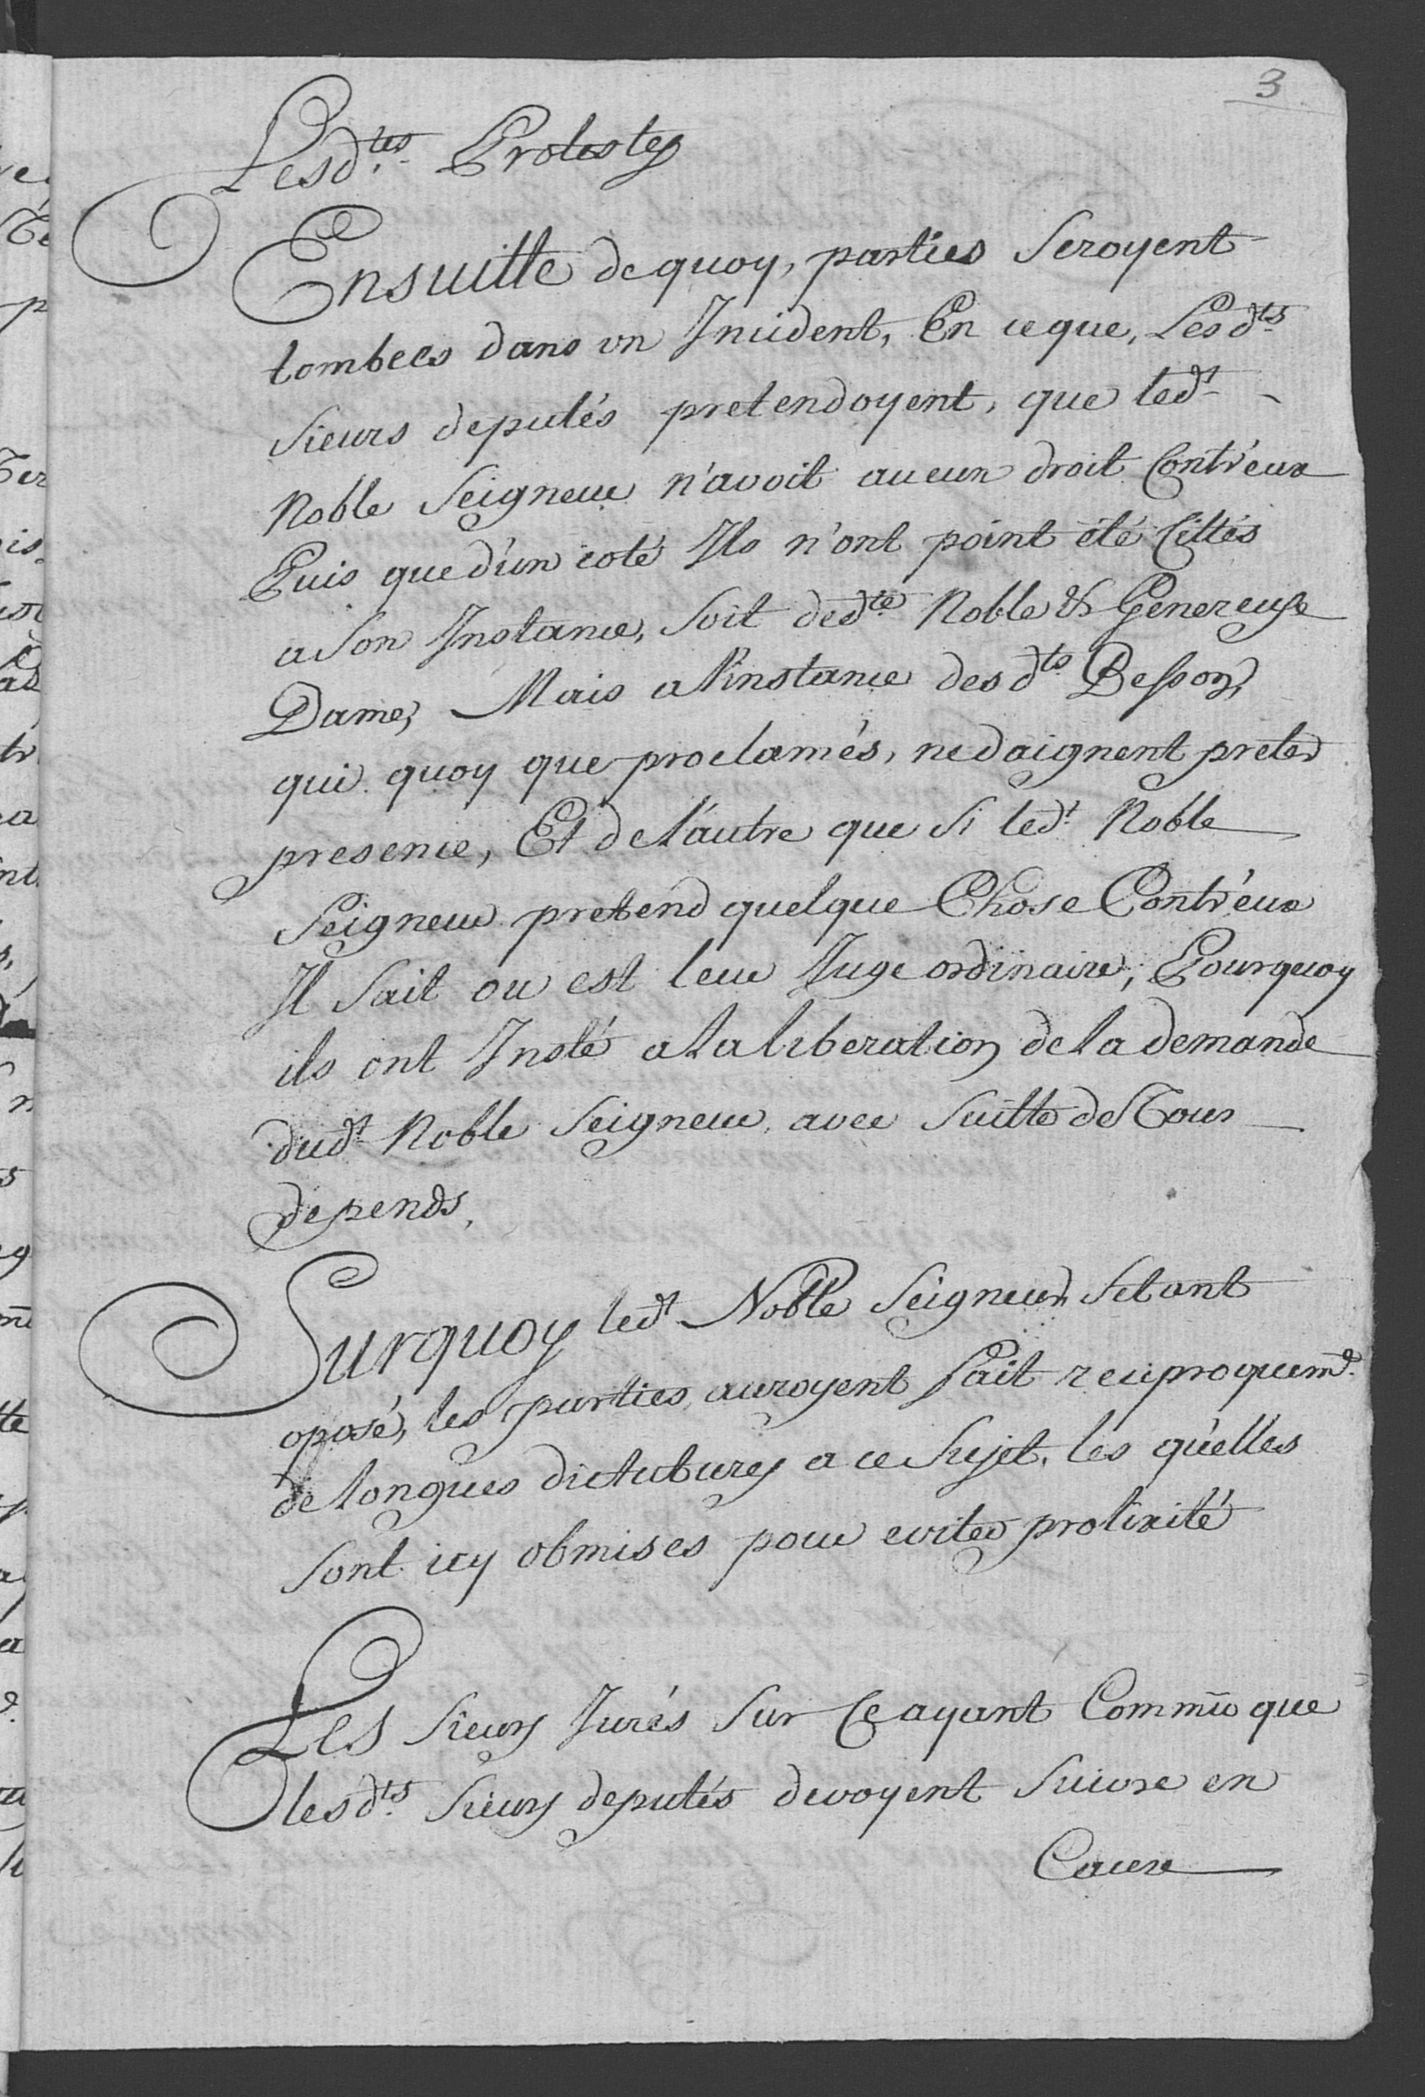 3
Lesd.tes Protestes
Ensuitte de quoy, parties Seroyent
tombées dans un Incident, En ce que, Lesd.ts
Sieurs deputés pretendoyent, que led.t
Noble Seigneur n'avoit aucun droit Contr'eux
Puis que d'un coté Ils n'ont point été Cittés
a Son Instance, Soit ded.te Noble & Genereuse
Dame, Mais a l'instance des d.ts Besson,
qui quoy que proclamés, ne daignent preter
presence, Et de l'autre que Si led.t Noble
Seigneur pretend quelque Chose Contr'eux
Il Sait ou est leur Juge ordinaire; Pourquoy
ils ont Insté a La liberation de La demande
dud.t Noble Seigneur avec Suitte de Tous
depends,
Surquoy led.t Noble Seigneur Setant
oposé, les parties auroyent fait reciproquem.t
de longues dictatures a ce Sujet, les qu'elles
Sont icy obmises pour eviter prolixité
Les Sieurs Jurés Sur Ce ayant Commu que
lesd.ts Sieurs deputés devoyent Suivre en
Cause